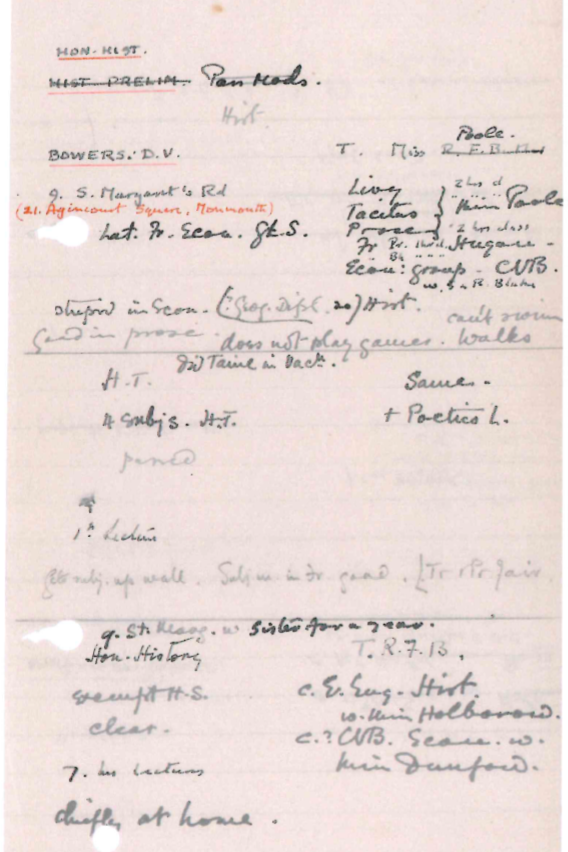 HON. HIST.
HIST PRELIM. Pan Mods.
Hist.
Poole.
BOWERS. D.V. T. Miss R.F.B.
9. S. Margaret's Rd Livy 2 hrs
(21. Agincourt Square, Monmouth) Tacitus Miss Poole
Lat. Fr. Econ. Gk. S. Prose 2 hrs class
Fr Pr.
Econ: group - CVB.
in Econ. (? Geog. Dipl. 20) Hist. can't swim
Good in prose. does not play games. Walks
did Taine in Vac.
H.T. Same.
4 Subjs. H.T. + Poetics L.
passed
1st Lecture
Gets subj. up well. in Fr good. [Tr & Pr. fair.
9. St. w Sister for a year.
Hon. History T. R.F.B.
exempt H.S. c. E. Eng. Hist.
clear. w. Miss Holborow.
c.? CVB. Econ. w.
7. hrs Lectures Miss Dunford.
chiefly at home.